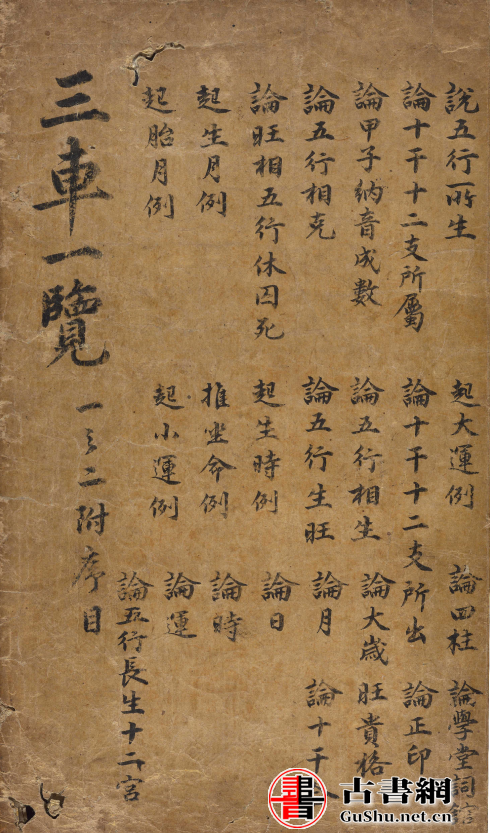 三車一覽 一之二附序目
說五行所生
論十干十二支所屬
論甲子納音成數
論五行相克
論旺相五行休囚死
起生月例
起胎月例
起大運例
論十干十二支所出
論五行相生
論五行生旺
起生時例
推坐命例
起小運例
論四柱
論大歲
論月
論日
論時
論運
論五行長生十二宮
論學堂詞館
論正印
旺貴格
論十干
書
古書網
GuShu.net.cn